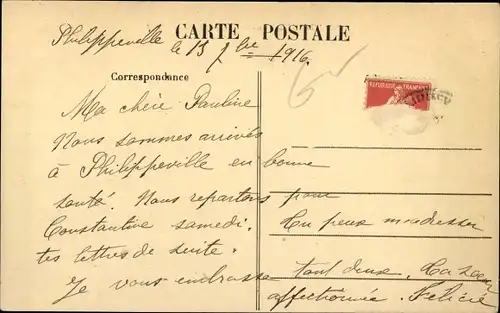 CARTE POSTALE
Philippeville le 15 7bre 1916.
Correspondance
RÉPUBLIQUE FRANÇAISE
Ma chère Pauline
Nous sommes arrivés
à Philippeville en bonne
santé. Nous repartons pour
Constantine samedi. Tu peux m'adresser
tes lettres de suite.
Je vous embrasse tout deux. Ta soeur
affectionnée. Félicie